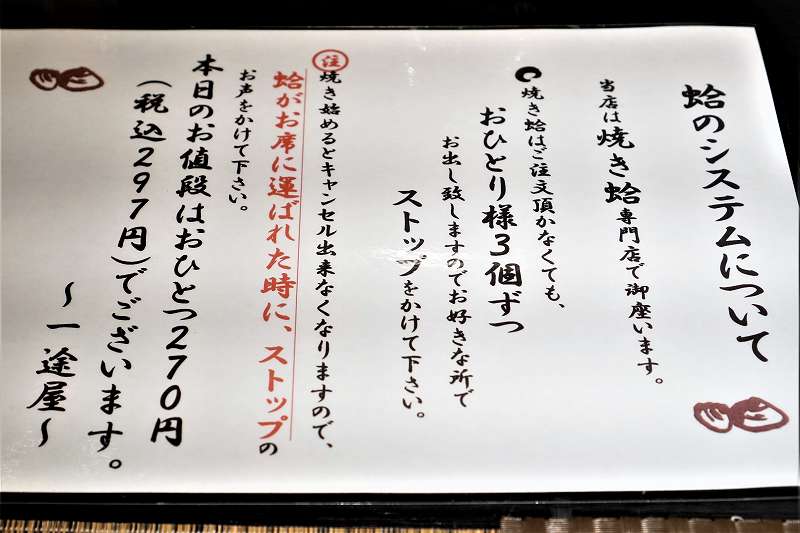 蛤のシステムについて
当店は焼き蛤専門店で御座います。
焼き蛤はご注文頂かなくても、
おひとり様3個ずつ
お出し致しますのでお好きな所で
ストップをかけて下さい。
注焼き始めるとキャンセル出来なくなりますので、
蛤がお席に運ばれた時に、ストップの
お声をかけて下さい。
本日のお値段はおひとつ270円
(税込297円)でございます。
〜一途屋〜